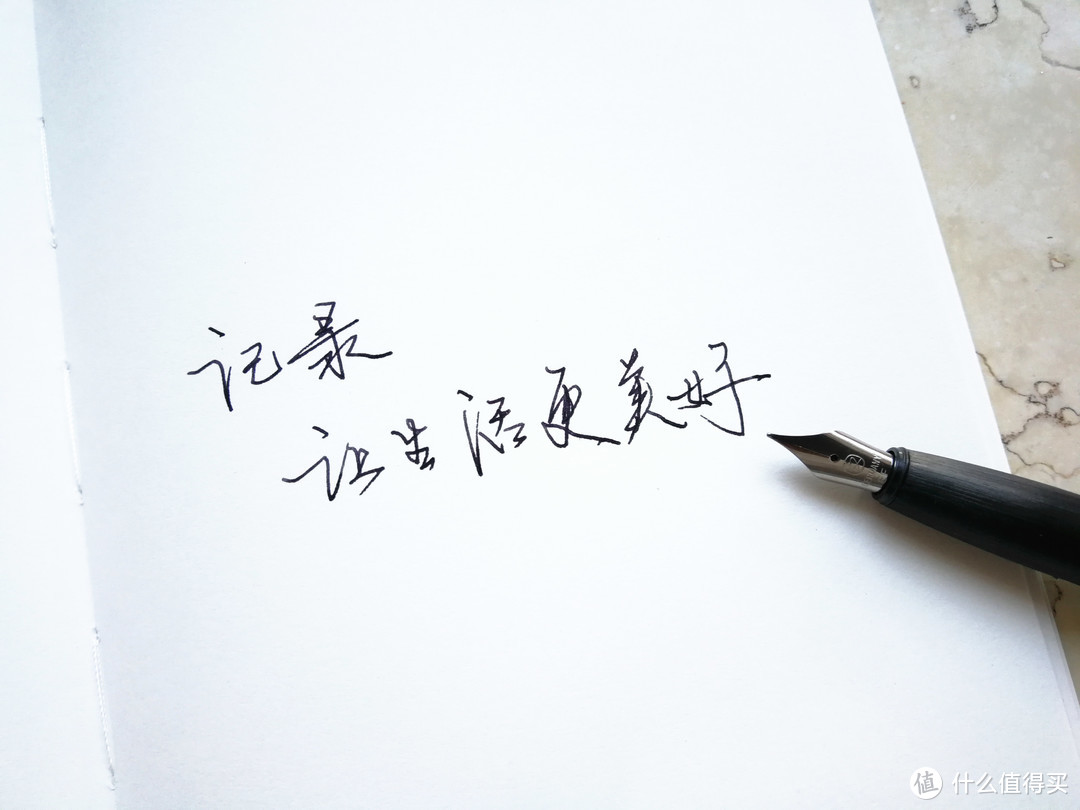 记录
让生活更美好
值 什么值得买